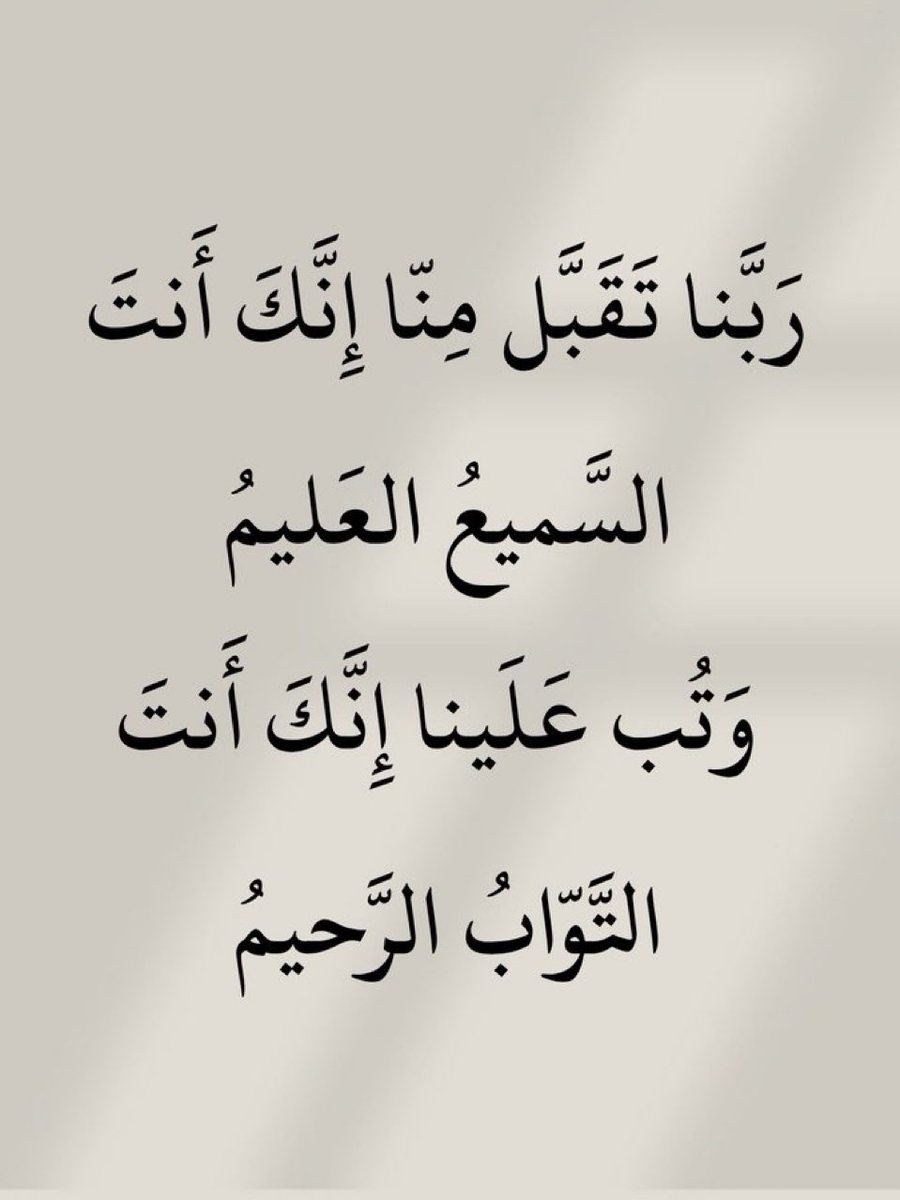 رَبَّنا تَقَبَّل مِنّا إِنَّكَ أَنتَ
السَّميعُ العَليمُ
وَتُب عَلَينا إِنَّكَ أَنتَ
التَّوّابُ الرَّحيمُ